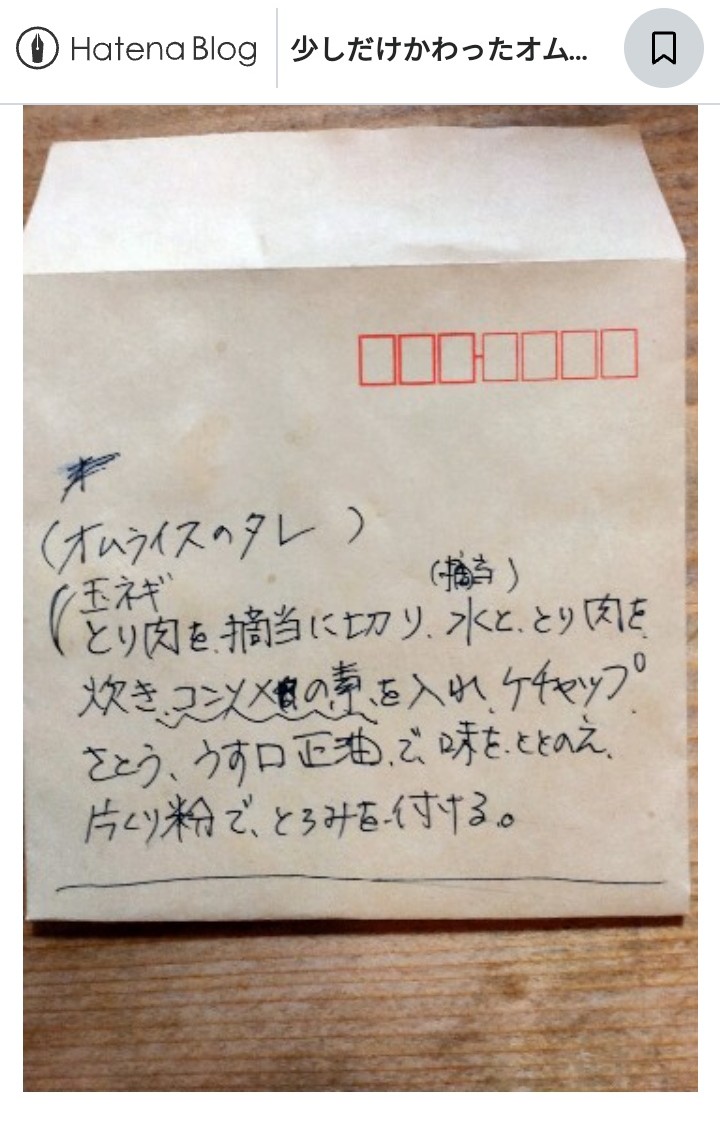 Hatena Blog
少しだけかわったオム...
(オムライスのタレ )
(玉ネギ
(摘当)
とり肉を、摘当に切り、水と、とり肉を
炊き、コンソメの素、を入れ、ケチャップ、
さとう、うす口正油、で、味を、ととのえ、
片くり粉で、とろみを付ける。